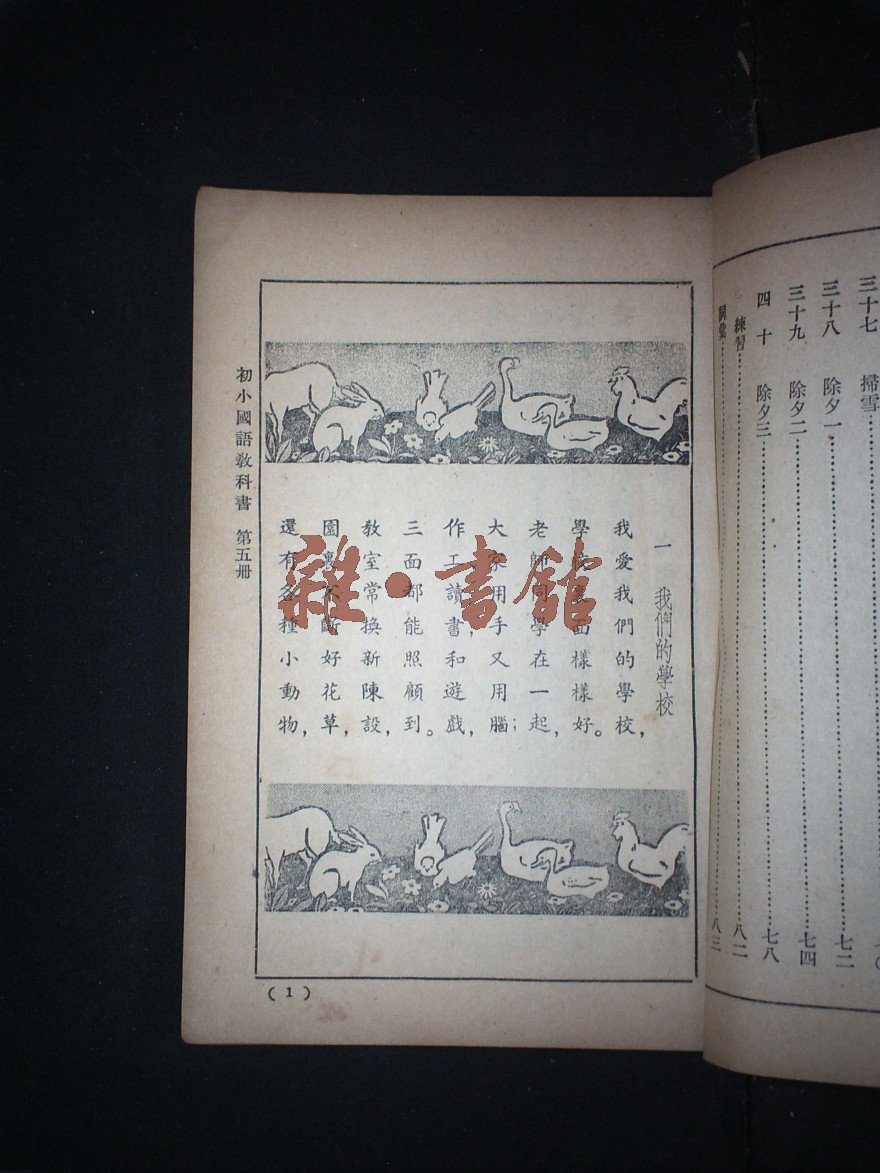 三十七 掃雪
三十八 除夕一 七二
三十九 除夕二 七四
四十 除夕三 七八
練習 八二
詞彙 八三
一 我們的學校
我愛我們的學校，
學校裏面樣樣好。
老師同學在一起，
大家用手又用腦；
作工讀書，和遊戲，
三面都能照顧到。
教室常換新陳設，
園裏不斷好花草，
還有各種小動物，
初小國語教科書 第五册
(1)
雜·書館